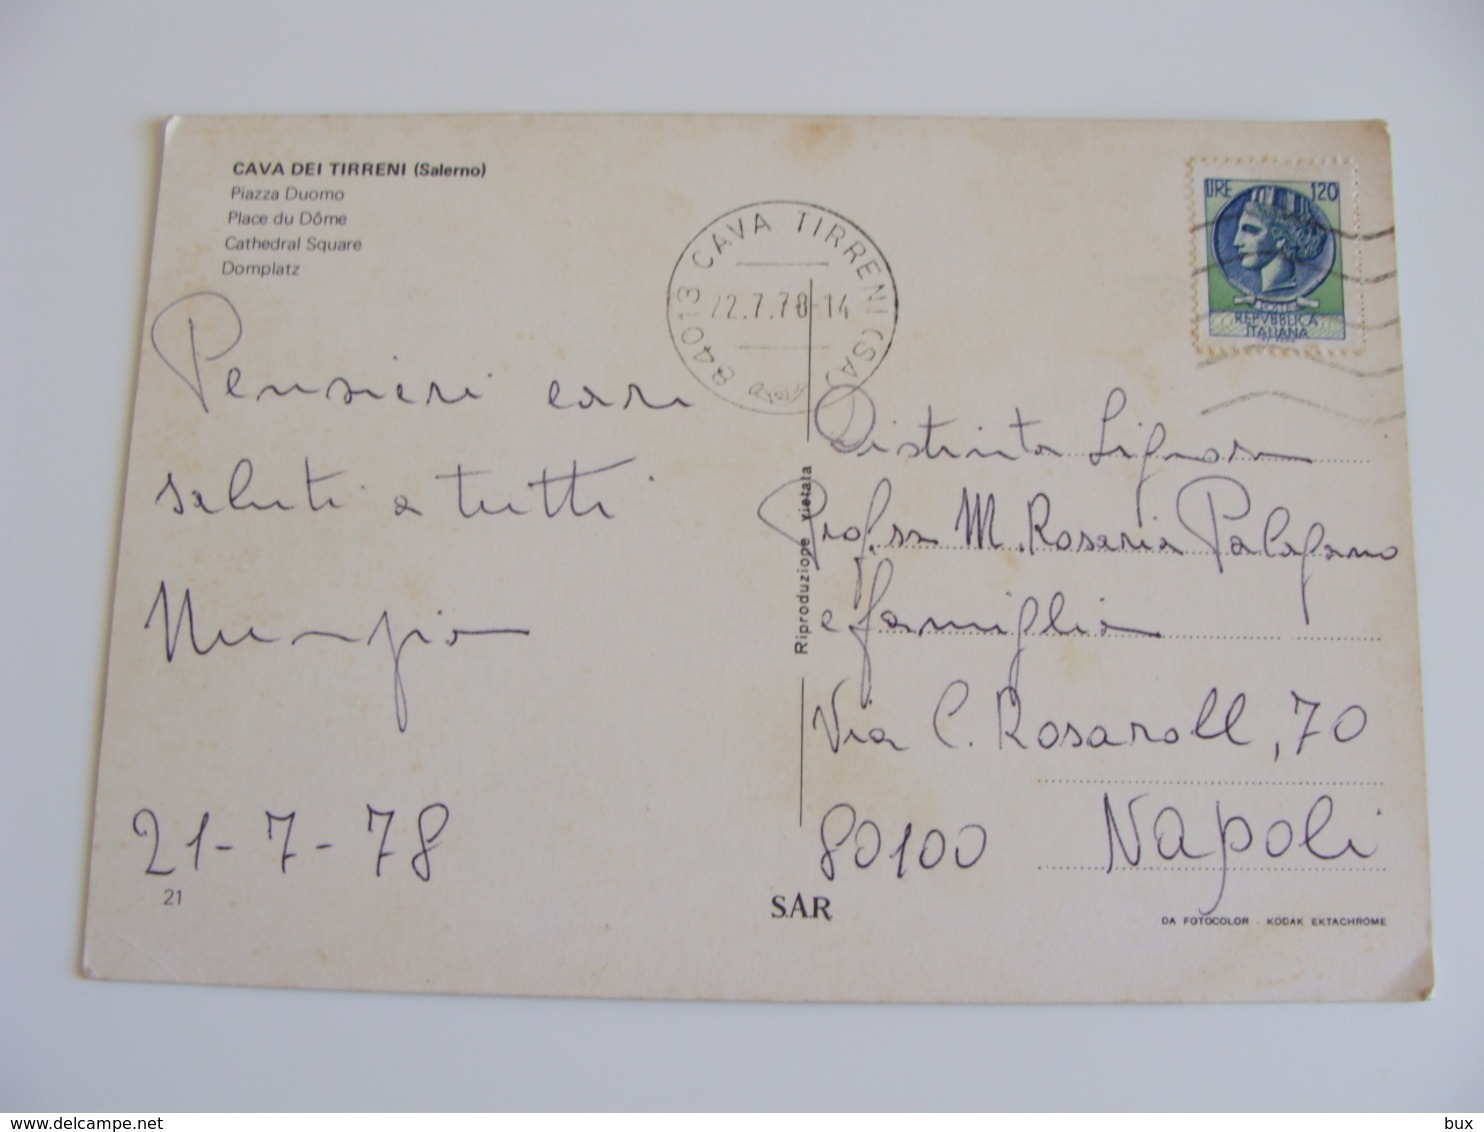 CAVA DEI TIRRENI (Salerno)
Piazza Duomo
Place du Dôme
Cathedral Square
Domplatz
84013 CAVA TIRRENI (SA)
22.7.78-14
LIRE 120
REPVBBLICA
ITALIANA
Pensieri cari
saluti a tutti
Nunzia
21-7-78
21
Riproduzione vietata
S.A.R.
Distinta Signora
Prof.ssa M. Rosaria Palagano
e famiglia
Via C. Rosaroll, 70
80100 Napoli
DA FOTOCOLOR - KODAK EKTACHROME
delcampe.net
bux